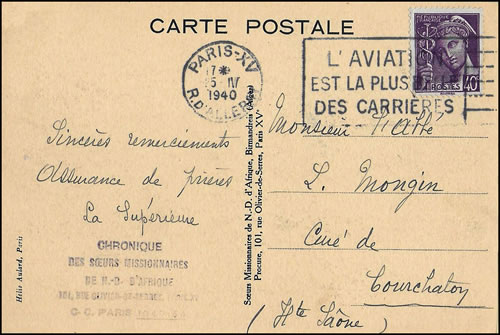 CARTE POSTALE
RÉPUBLIQUE FRANÇAISE
POSTES
40
PARIS-XV
17
5 IV
1940
R. D'ALLERAY
L'AVIATION
EST LA PLUS
DES CARRIÈRES
Sincères remerciements
Assurance de prières
La Supérieure
CHRONIQUE
DES SŒURS MISSIONNAIRES
DE N.-D. D'AFRIQUE
101, RUE OLIVIER-DE-SERRES, PARIS
C. C. PARIS
Hélio Aulard, Paris
Sœurs Missionnaires de N.-D. d'Afrique, Birmandreis (Alger)
Procure, 101, rue Olivier-de-Serres, Paris XVe
Monsieur l'abbé
L. Mongin
Curé de
Courchaton
(Hte Saône)